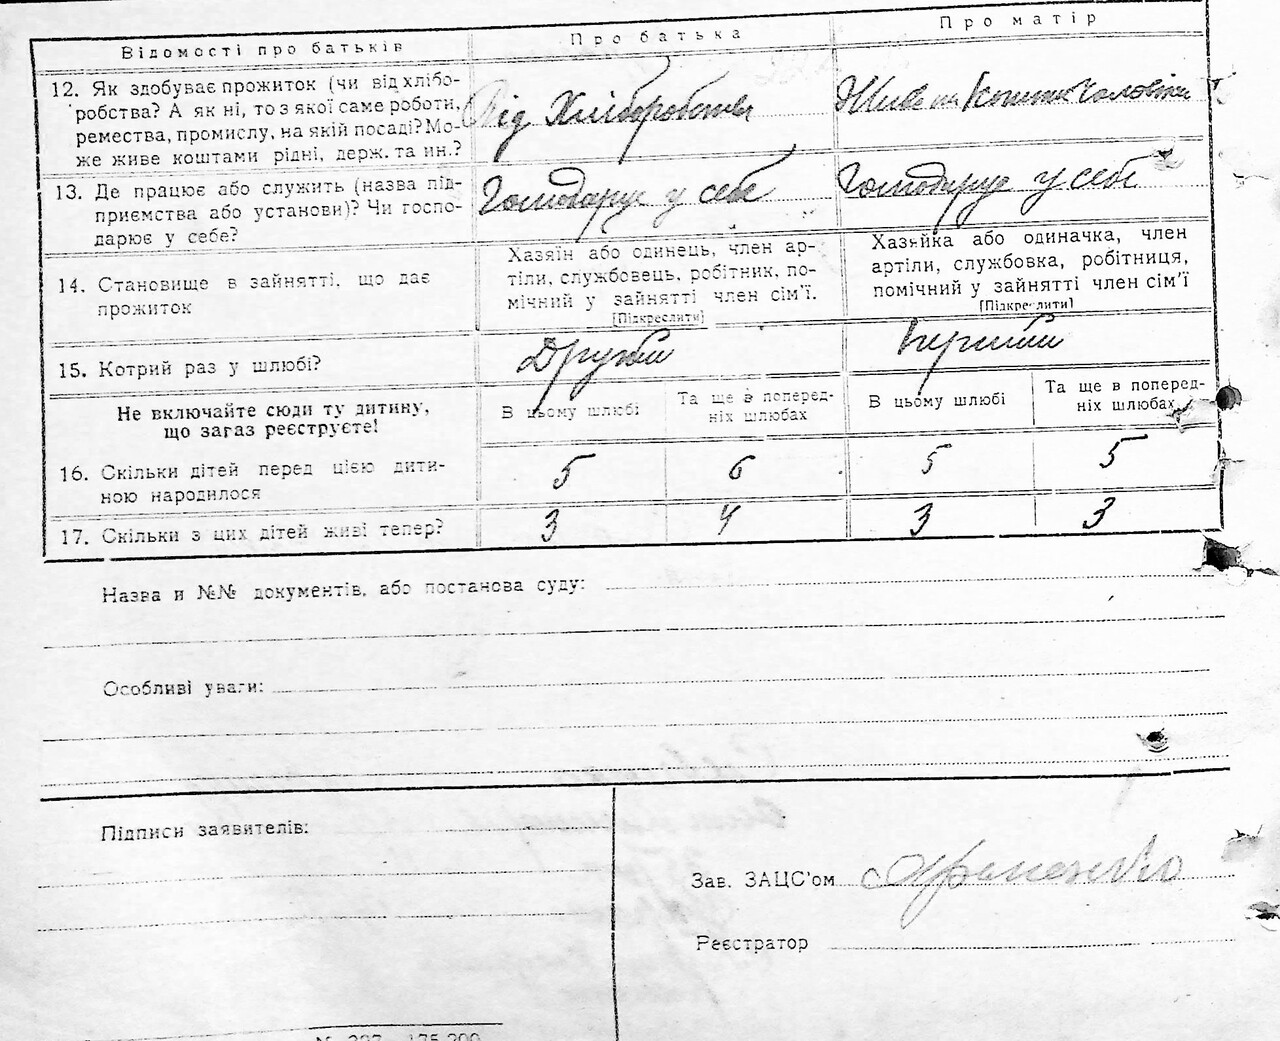 Відомості про батьків
Про батька
Про матір
12. Як здобуває прожиток (чи від хлібо-
робства? А як ні, то з якої саме роботи,
ремества, промислу, на якій посаді? Мо-
же живе коштами рідні, держ. та ин.?
Від Хліборобства
Живе на Кошти Чоловіка
13. Де працює або служить (назва під-
приємства або установи)? Чи госпо-
дарює у себе?
Господарує у себе
Господарує у себе
14. Становище в зайнятті, що дає
прожиток
Хазяїн або одинець, член ар-
тіли, службовець, робітник, по-
мічний у зайнятті член сім'ї.
[Підкреслити]
Хазяйка або одиначка, член
артіли, службовка, робітниця,
помічний у зайнятті член сім'ї
[Підкреслити]
15. Котрий раз у шлюбі?
Другий
Перший
Не включайте сюди ту дитину,
що загаз реєструєте!
В цьому шлюбі
Та ще в поперед-
ніх шлюбах
В цьому шлюбі
Та ще в поперед-
ніх шлюбах
16. Скільки дітей перед цією дити-
ною народилося
5
6
5
5
17. Скільки з цих дітей живі тепер?
3
4
3
3
Назва и №№ документів, або постанова суду:
Особливі уваги:
Підписи заявителів:
Зав. ЗАЦС'ом
Реєстратор